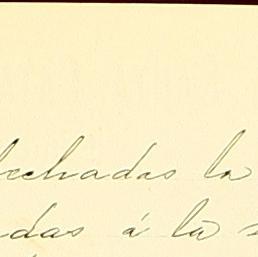 fechadas la
das á la s